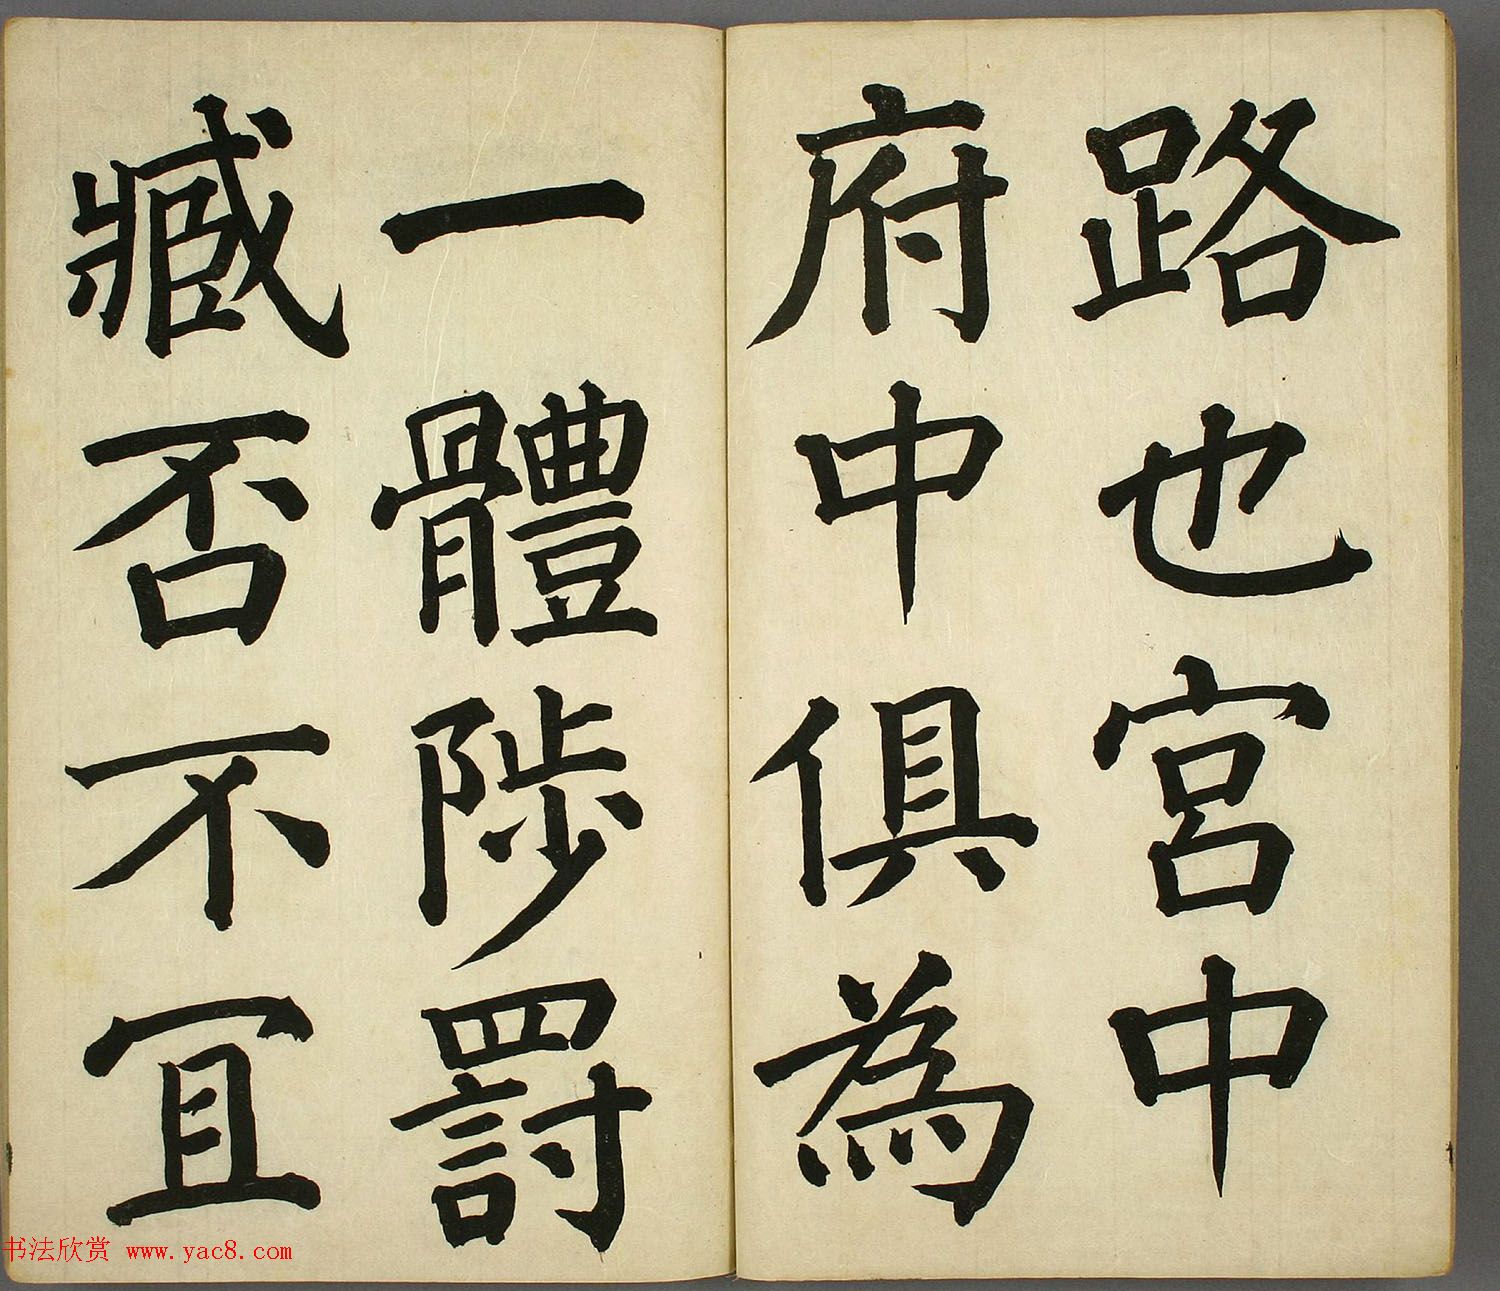 路也宮中
府中俱為
一體陟罰
臧否不冝
书法欣赏 www.yac8.com